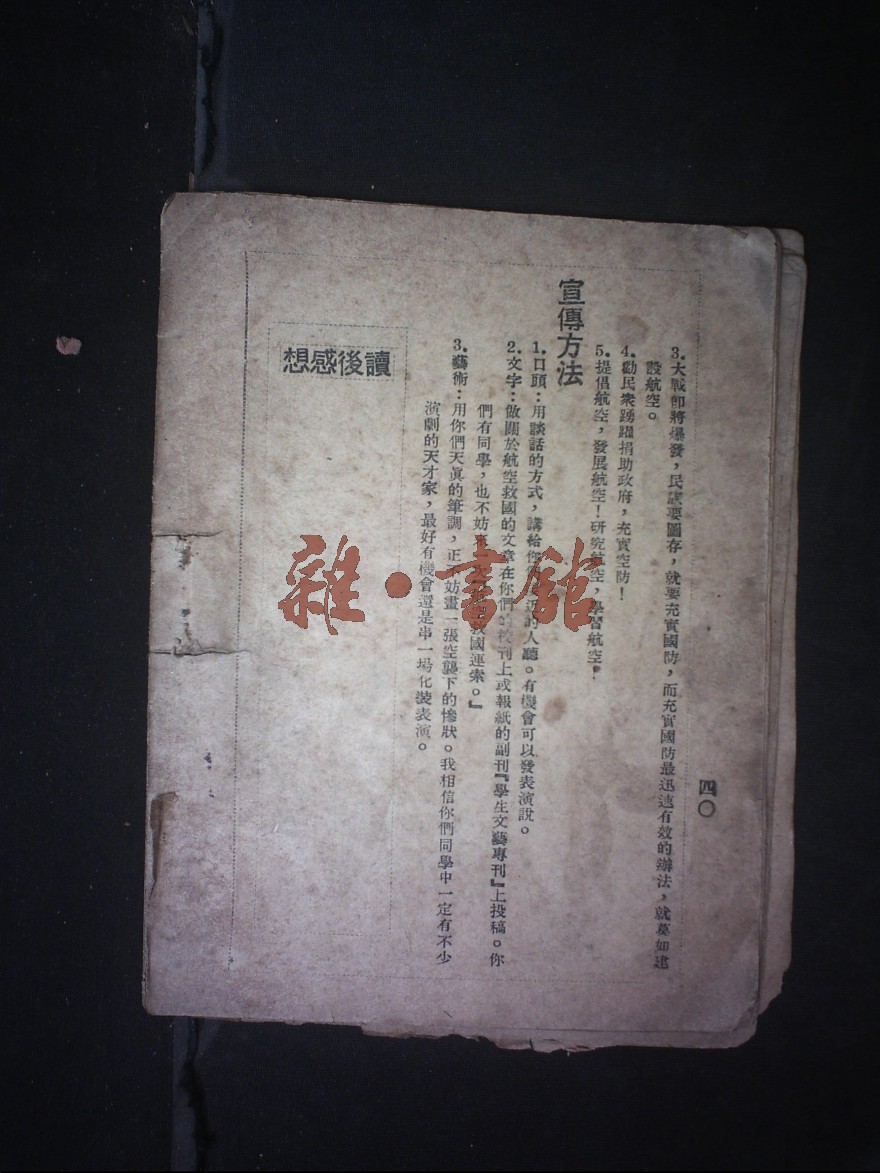 四〇
3.大戰卽將爆發，民族要圖存，就要充實國防，而充實國防最迅速有效的辦法，就莫如建
設航空。
4.勸民衆踴躍捐助政府，充實空防！
5.提倡航空，發展航空！研究航空，學習航空！
宣傳方法
1.口頭：用談話的方式，講給你們接近的人聽。有機會可以發表演說。
2.文字：做關於航空救國的文章在你們的校刊上或報紙的副刊『學生文藝專刊』上投稿。你
們有同學，也不妨來一次 空救國連索。』
3.藝術：用你們天眞的筆調，正不妨畫一張空襲下的慘狀。我相信你們同學中一定有不少
演劇的天才家，最好有機會還是串一場化裝表演。
讀後感想
雜·書館